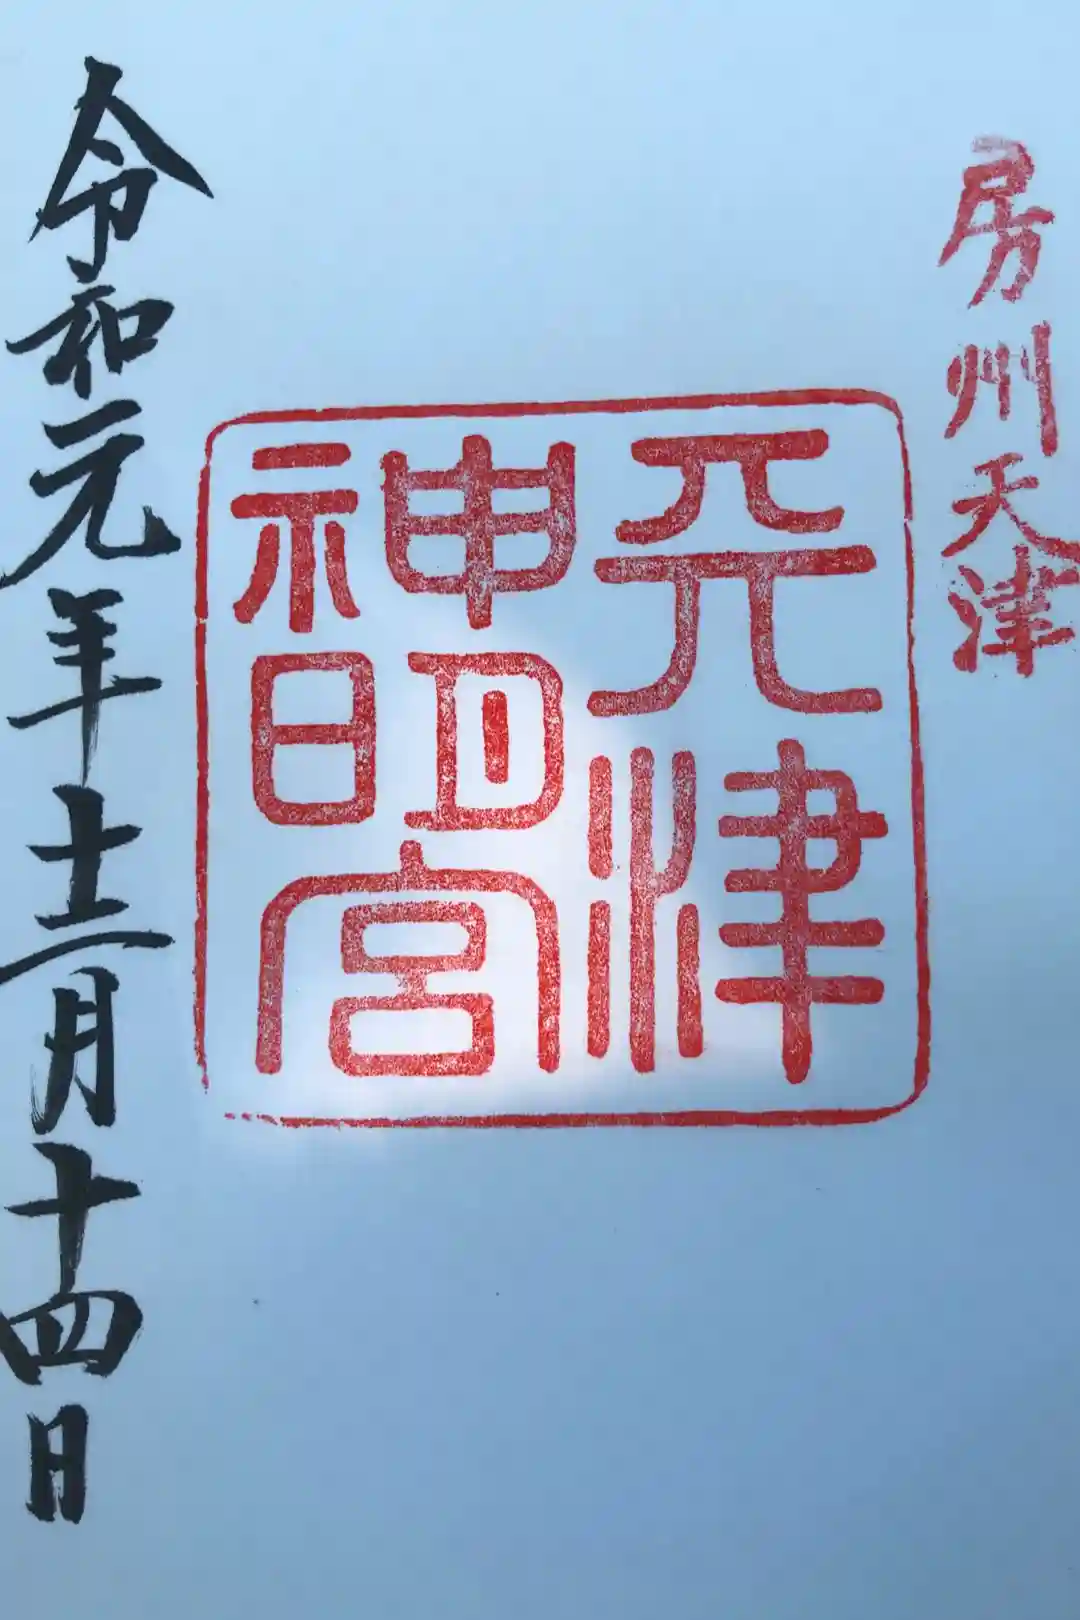 房州天津
天津
神明宮
令和元年十二月十四日